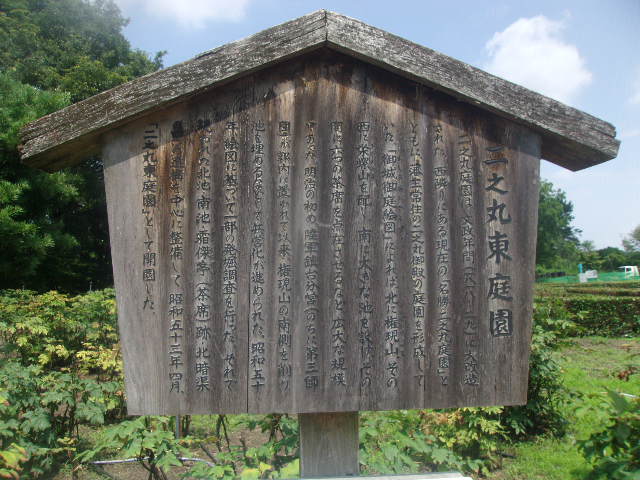 二之丸東庭園
二之丸庭園は、文政年間(一八一八〜二九)に大改造
された。西隣りにある現在の「名勝二之丸庭園」と
ともに藩主常住の二之丸御殿の庭園を形成して
いた。「御城御庭絵図」によれば、北に権現山、その
西に 山を配し、南に大きな池を設け、この
南に六つの茶席を点在させるなど広大な規模
であった。明治の初め、陸軍鎮台分営(のちに第三師
団)が郭内に置かれて以来、権現山の南側を削り
池を埋めるなどして兵営化が進められた。昭和五十
年、絵図に基いて一部の発掘調査を行った。それで
の北池、南池、霜傑亭(茶席)跡、北暗渠
遺構を中心に整備して、昭和五十三年四月、
「二之丸東庭園」として開園した。